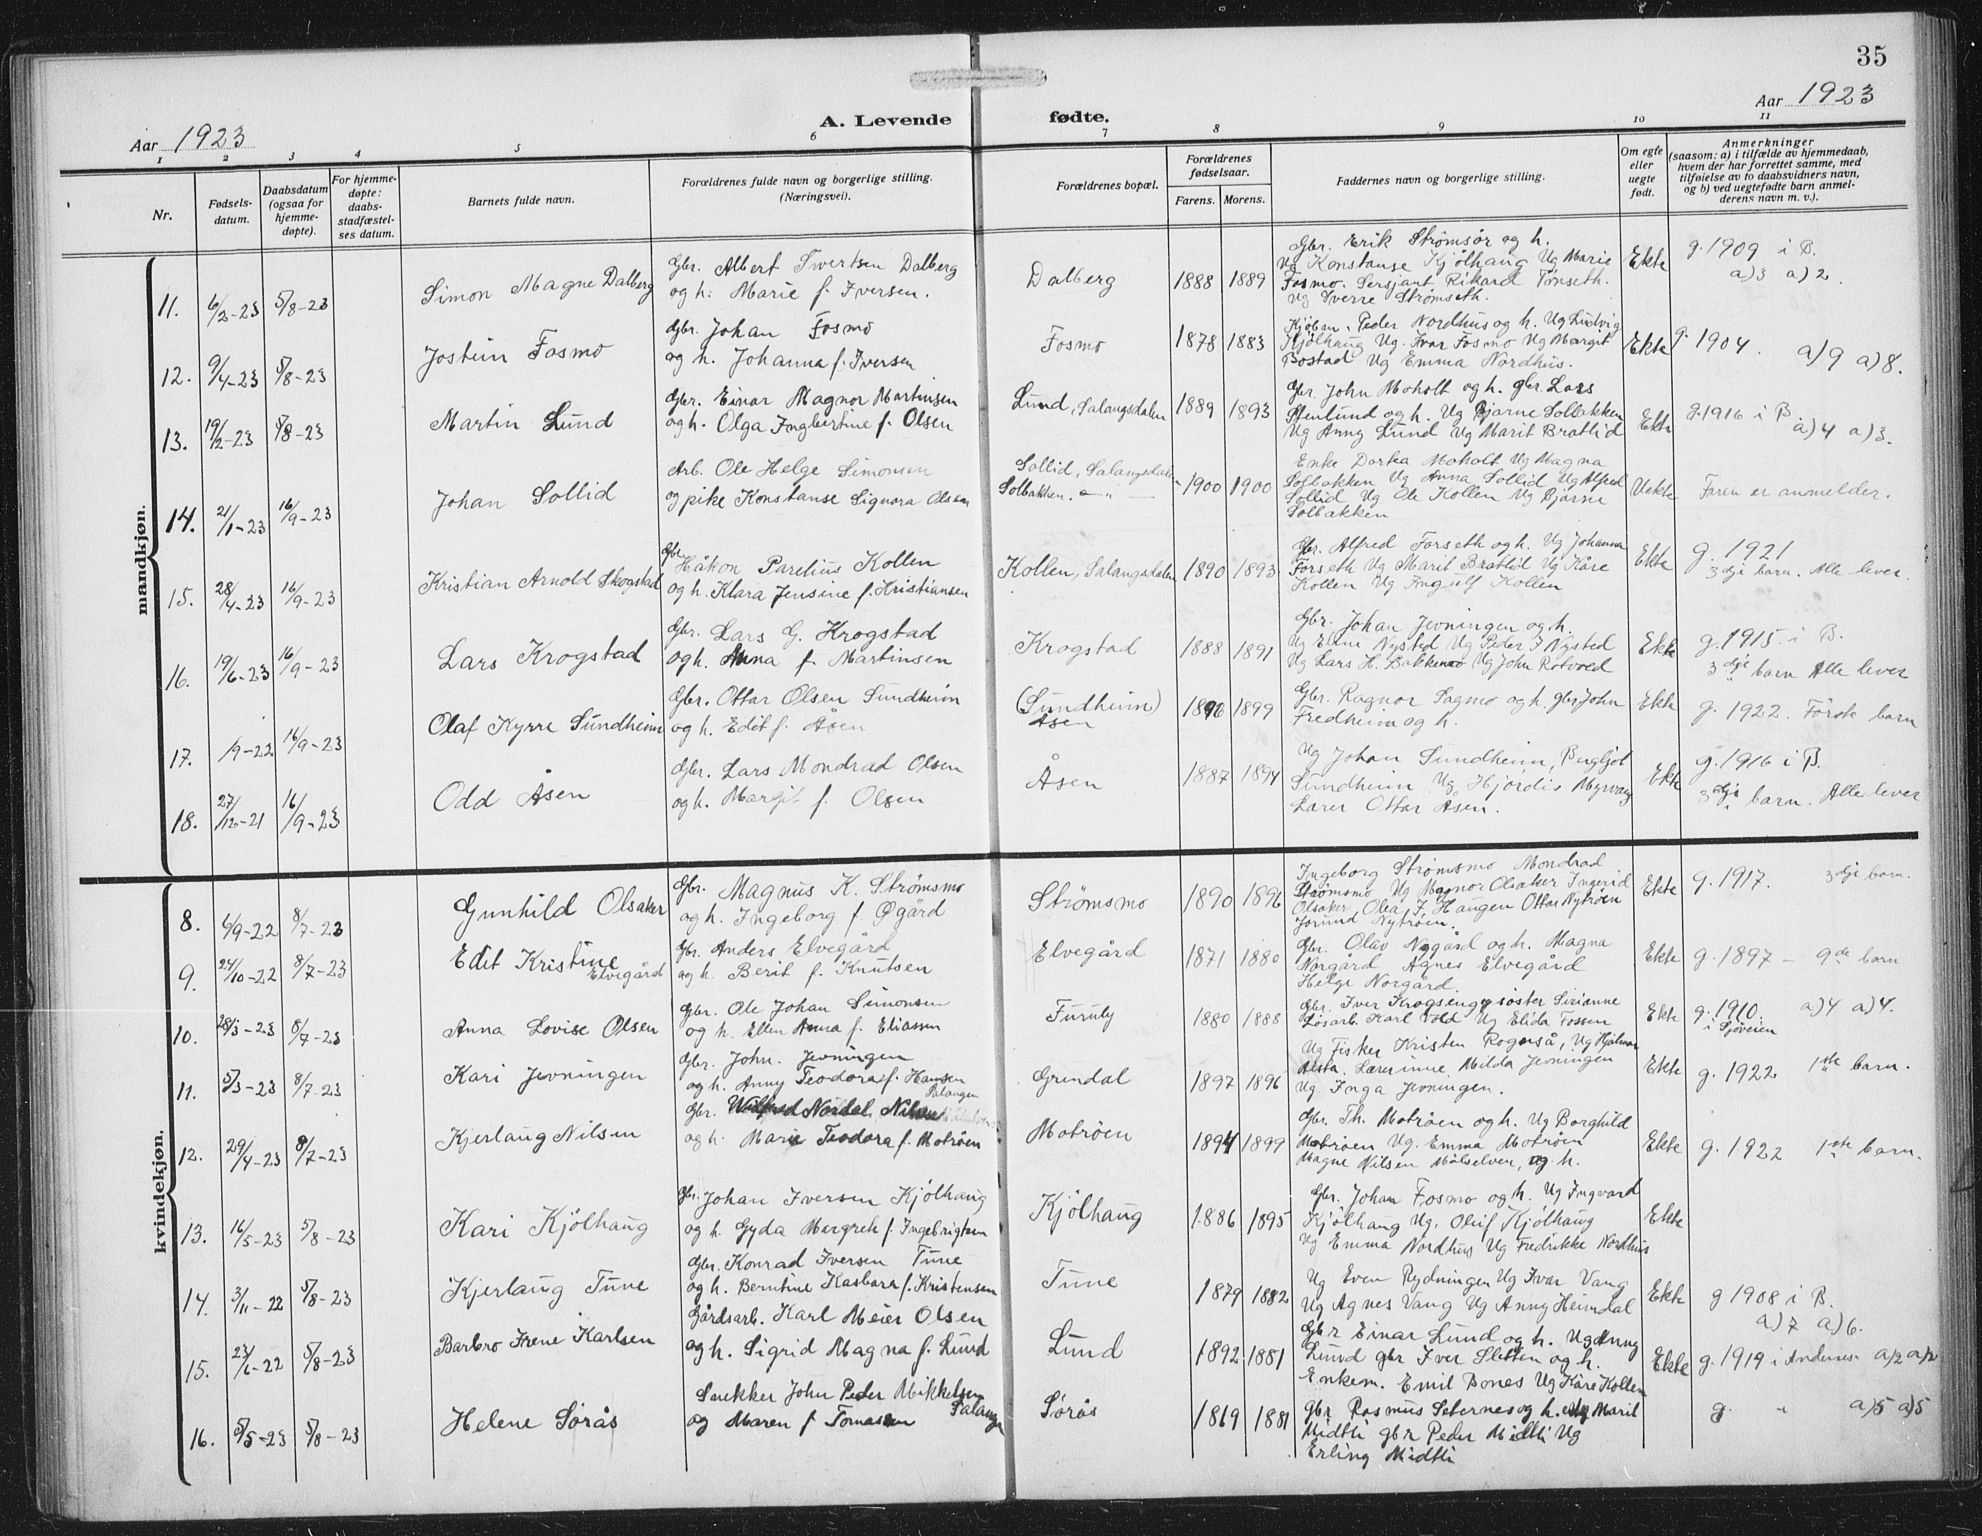 35
Aar 1923
A. Levende fødte.
Aar 1923
1 2 3 4 5 6 7 8 9 10 11
Nr.
Fødsels-datum.
Daabsdatum (ogsaa for hjemme-døpte).
For hjemme-døpte: daabs-stadfæstel-ses datum.
Barnets fulde navn.
Forældrenes fulde navn og borgerlige stilling. (Næringsvei).
Forældrenes bopæl.
Forældrenes fødselsaar.
Farens. Morens.
Faddernes navn og borgerlige stilling.
Om egte eller uegte født.
Anmerkninger (saasom: a) i tilfælde av hjemmedaab, hvem der har forrettet samme, med tilføielse av to daabsvidners navn, og b) ved uegtefødte barn anmel-derens navn m. v.).
mandkjøn.
11. 6/2-23 5/8-23 Simon Magne Dalberg
Gbr. Albert Ivertsen Dalberg
og h. Marie f. Iversen.
Dalberg 1888 1889
Gbr. Erik Strømsør og h.
Ug Konstanse Kjølhaug Ug Marie
Fosmo. Sersjant Rikard Tønseth.
Ug Sverre Strømseth.
Ekte g. 1909 i B.
a)3 a)2.
12. 9/4-23 5/8-23 Jostein Fosmo
Gbr. Johan Fosmo
og h. Johanna f. Iversen
Fosmo 1878 1883
Kjøbm. Peder Nordhus og h. Ug Ludvig
Kjølhaug Ug. Ivar Fosmo Ug Margit
Bostad Ug Emma Nordhus.
Ekte g. 1904. a)9 a)8.
13. 19/2-23 5/8-23 Martin Lund
Gbr. Einar Magnor Martinsen
og h. Olga Ingbertine f. Olsen
Lund, Salangsdalen 1889 1893
Gbr. John Moholt og h. gbr Lars
Stenlund og h. Ug Bjarne Solbakken
Ug Anny Lund Ug Marit Bratlid
Ekte g. 1916 i B
a)4 a)3.
14. 21/1-23 16/9-23 Johan Sollid
Arb. Ole Helge Simonsen
og pike Konstanse Signora Olsen
Sollid, Salangsdalen
Solbakken. — " —
1900 1900
Enke Dorka Moholt Ug Magna
Solbakken Ug Anna Sollid Ug Alfred
Sollid Ug Ole Kollen Ug Bjarne
Solbakken
Uekte Faren er anmelder.
15. 28/4-23 16/9-23 Kristian Arnold Skogstad
Gbr. Håkon Parelius Kollen
og h. Klara Jensine f. Kristiansen
Kollen, Salangsdalen 1890 1893
Gbr. Alfred Forseth og h. Ug Johanna
Forseth Ug Marit Bratlid Ug Kåre
Kollen Ug Ingulf Kollen
Ekte g. 1921
3dje barn. Alle lever.
16. 19/6-23 16/9-23 Lars Krogstad
Gbr. Lars G. Krogstad
og h. Anna f. Martinsen
Krogstad 1888 1891
Gbr. Johan Jevningen og h.
Ug Eline Nysted Ug Peder I Nysted
Ug Lars H. Bakkemo Ug John Rotvold
Ekte g. 1915 i B.
3dje barn Alle lever
17. 1/9-22 16/9-23 Olaf Kyrre Sundheim
Gbr. Ottar Olsen Sundheim
og h. Edit f. Åsen
(Sundheim)
Åsen
1896 1899
Gbr. Ragnor Sagmo og h. gbr John
Fredheim og h.
Ekte g. 1922. Første barn
18. 27/12-21 16/9-23 Odd Åsen
Gbr. Lars Mondrad Olsen
og h. Margit f. Olsen
Åsen 1887 1894
Ug Johan Sundheim, Bergljot
Sundheim Ug. Hjørdis Myrvang
Lærer Ottar Åsen.
Ekte g. 1916 i B.
3dje barn. Alle lever
kvindekjøn.
8. 6/9-22 8/7-23 Gunhild Olsaker
Gbr. Magnus K. Strømsmo
og h. Ingeborg f. Øgård
Strømsmo 1890 1896
Ingeborg Strømsmo Mondrad
Strømsmo Ug Magnor Olsaker Ingerid
Olsaker Olea J. Haugen Ottar Nytrøen
Jorund Nytrøen.
Ekte g. 1917. 3dje barn.
9. 24/10-22 8/7-23 Edit Kristine
Elvegård
Gbr. Anders Elvegård
og h. Berit f. Knutsen
Elvegård 1871 1880
Gbr. Olav Nygård og h. Magna
Norgård Agnes Elvegård
Helge Norgård.
Ekte g. 1897 – 9de barn
10. 28/3-23 8/7-23 Anna Lovise Olsen
Gbr. Ole Johan Simonsen
og h. Ellen Anna f. Eliassen
Furuly 1880 1888
Gbr. Iver Krogseng søster Sirianne
Løsarb. Karl Vold Ug Elida Fossen
Ekte g. 1910. a)4 a)4.
i Sjøveien
11. 5/3-23 8/7-23 Kari Jevningen
Gbr. John. Jevningen
og h. Anny Teodora f. Hansen
Salangen
Grendal 1897 1896
Ug Fisker Kristen Rogerså, Ug Hjalmar
Alsta, Lærerinne Milda Jevningen
Ug. Inga Jevningen.
Ekte g. 1922 1ste barn.
12. 29/4-23 8/7-23 Kjerlaug Nilsen
Gbr. Wilfred Nordal Nilsen
og h. Marie Teodora f. Motrøen
Motrøen 1894 1899
Gbr. Th. Motrøen og h. Ug Borghild
Motrøen Ug. Emma Motrøen
Magne Nilsen Målselven, og h.
Ekte g. 1922 1ste barn.
13. 16/5-23 5/8-23 Kari Kjølhaug
Gbr. Johan Iversen Kjølhaug
og h. Gyda Margreth f. Ingebrigtsen
Kjølhaug 1886 1895
Gbr. Johan Fosmo og h. Ug Ingvard
Kjølhaug Ug. Oluf Kjølhaug
Ug Emma Nordhus Ug Fredrikke Nordhus
Ekte
14. 3/11-22 5/8-23 Kjerlaug Tune
Gbr. Konrad Iversen Tune
og h. Berntine Kasbara f. Kristensen
Tune 1879 1882
Ug Even Rydningen Ug Ivar Vang
Ug Agnes Vang Ug Anny Heimdal
Ekte g 1908 i B.
a)7 a)6.
15. 23/6-22 5/8-23 Barbro Irene Karlsen
Gårdsarb. Karl Meier Olsen
og h. Sigrid Magna f. Lund
Lund 1892 1881
Gbr Einar Lund og h. Ug Anny
Lund gbr Iver Sletten og h.
Enkem. Emil Bones Ug Kåre Kollen
Ekte g. 1919 i Andenes a)2 a)2
16. 5/5-23 5/8-23 Helene Sørås
Snekker John Peder Mikkelsen
og Maren f Tomassen Salangen
Sørås 1869 1881
gbr Rasmus Seternes og h. Ug Marit
Midtli gbr Peder Midtli Ug
Erling Midtli
g. " a)5 a)5